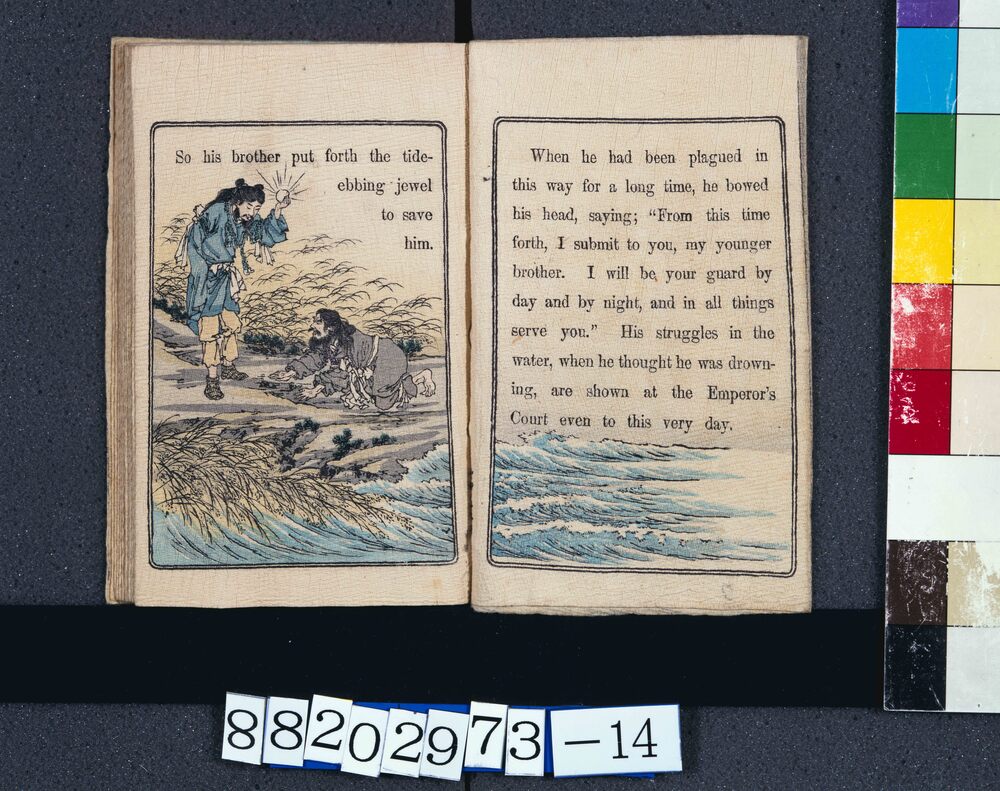 So his brother put forth the tide-
ebbing jewel
to save
him.
When he had been plagued in
this way for a long time, he bowed
his head, saying; "From this time
forth, I submit to you, my younger
brother. I will be your guard by
day and by night, and in all things
serve you." His struggles in the
water, when he thought he was drown-
ing, are shown at the Emperor's
Court even to this very day.
88202973-14